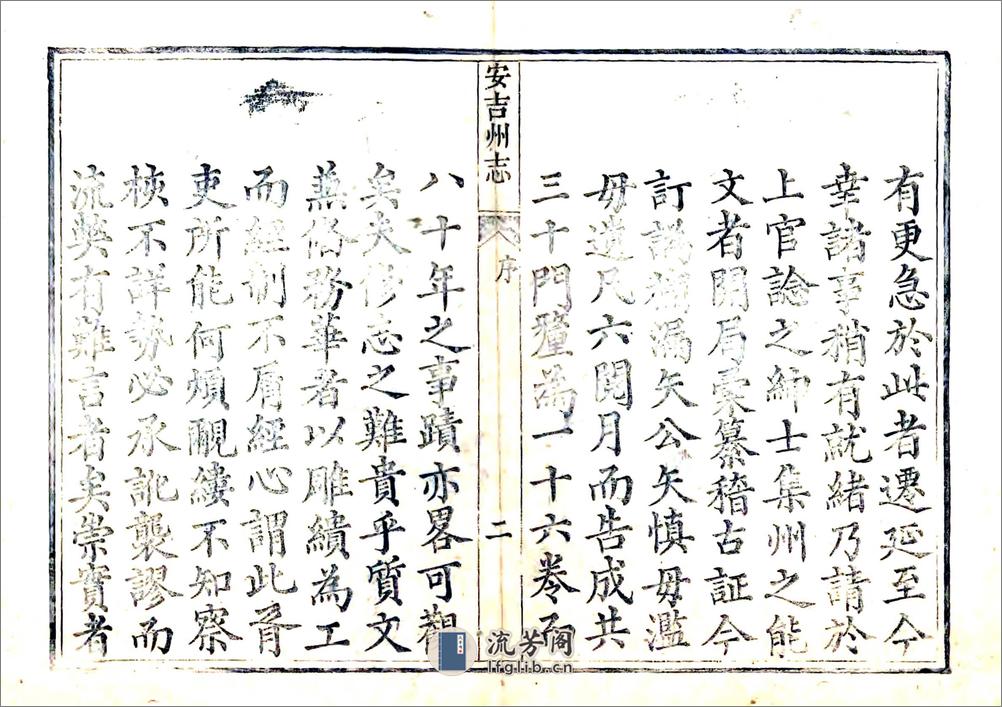 有更急於此者遷延至今
幸諸事稍有就緒乃請於
上官諗之紳士集州之能
文者開局彚纂稽古証今
訂譌補漏矢公矢慎毋濫
毋遺凡六閱月而告成共
三十門釐為一十六卷
安吉州志
序
二
八十年之事蹟亦畧可觀
矣夫修志之難貴乎質文
兼俻務華者以雕繢為工
而經制不屑經心謂此胥
吏所能何煩覼縷不知察
核不詳勢必承訛襲謬而
流弊有難言者矣崇實者
流芳阁
lfglib.cn